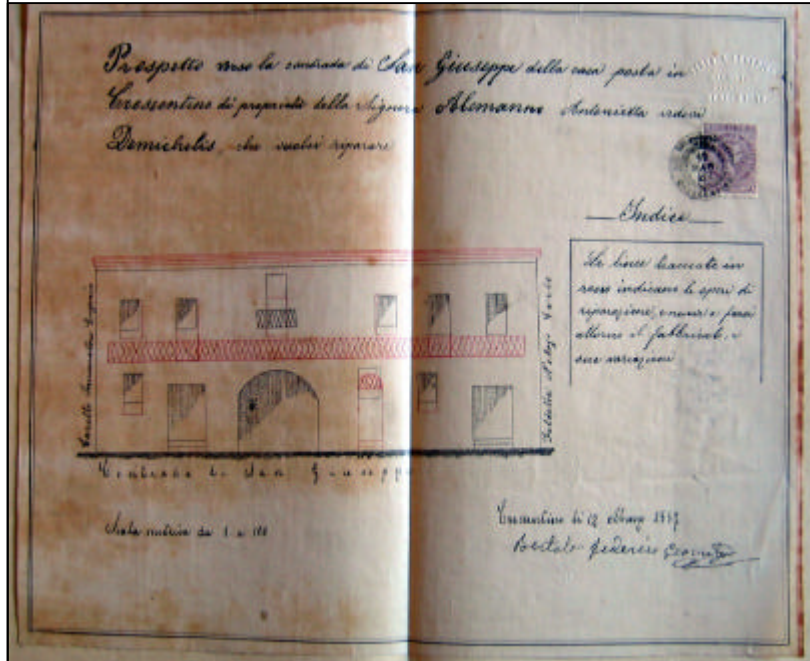 Prospetto verso la contrada di San Giuseppe della casa posta in
Crescentino di proprietà della Signora Alemanno Antonietta vedova
Demichelis, che vuolsi riparare
Indice
Le linee tracciate in
rosso indicano le opere di
riparazione, e nuove a farsi
attorno il fabbricato, e
sue variazioni
Contrada di San Giuseppe
Scala metrica da 1 a 100
Crescentino li 12 Marzo 1887
Federico Geometra